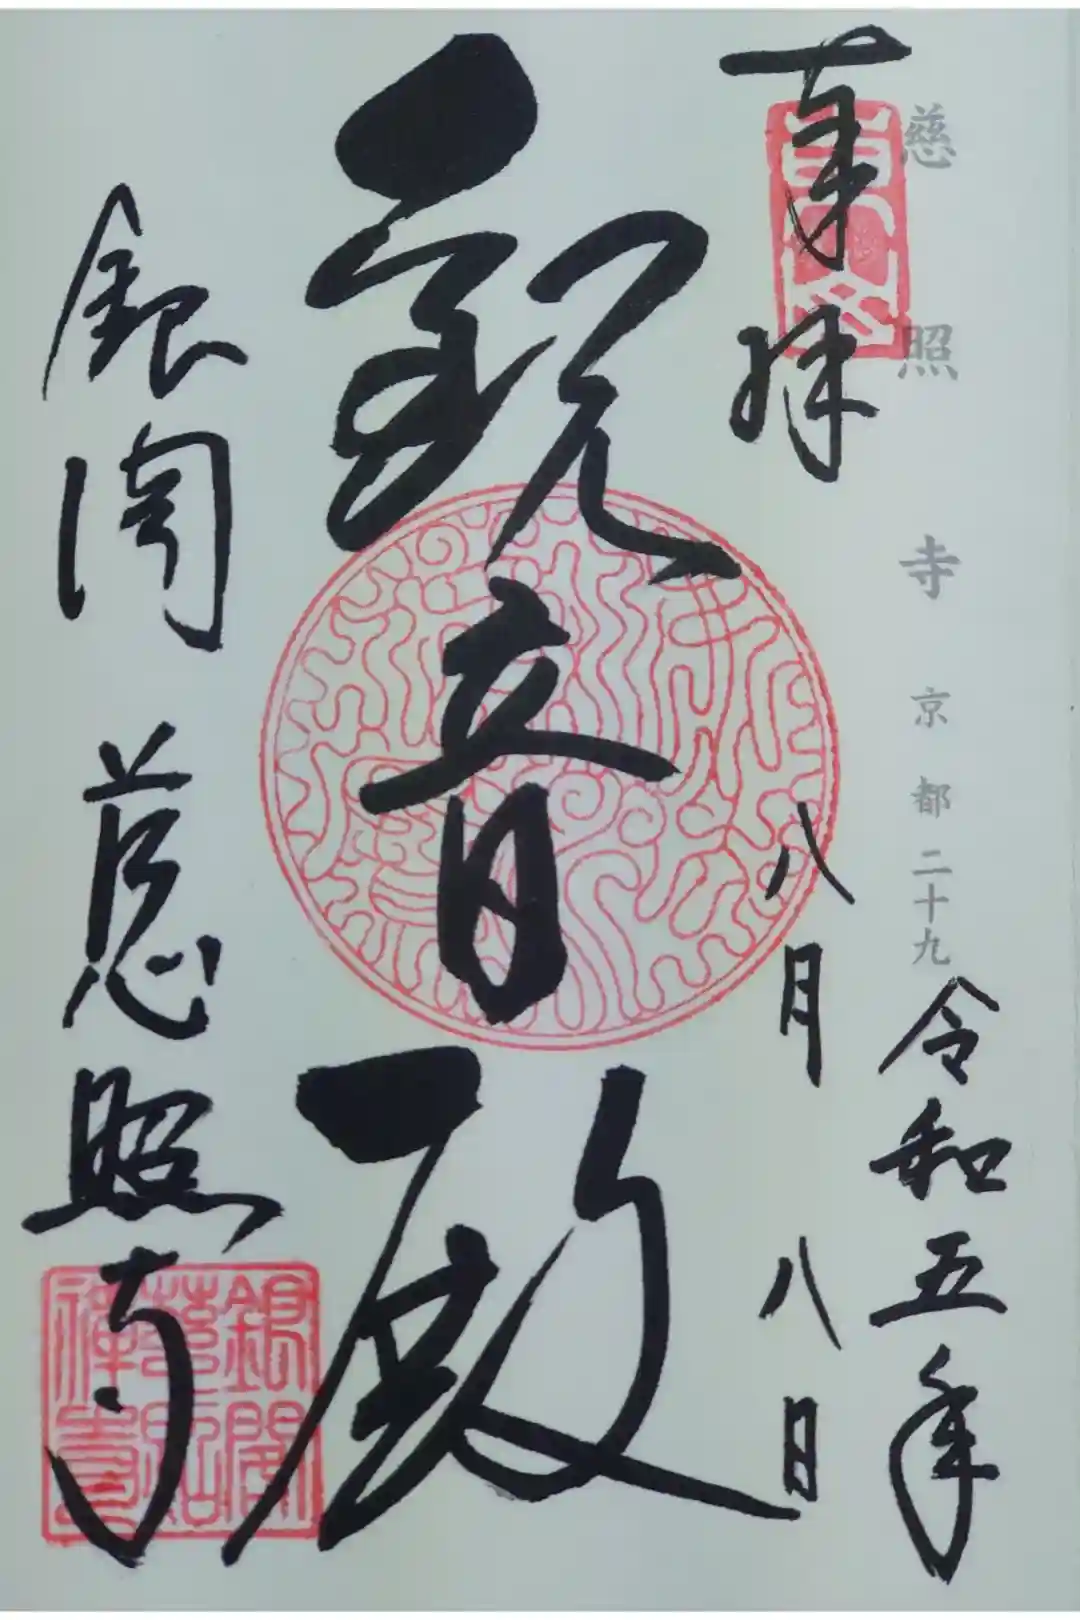 慈照寺 京都二十九
奉拝
令和五年
八月八日
観音殿
銀閣 慈照寺
銀閣慈照禅寺